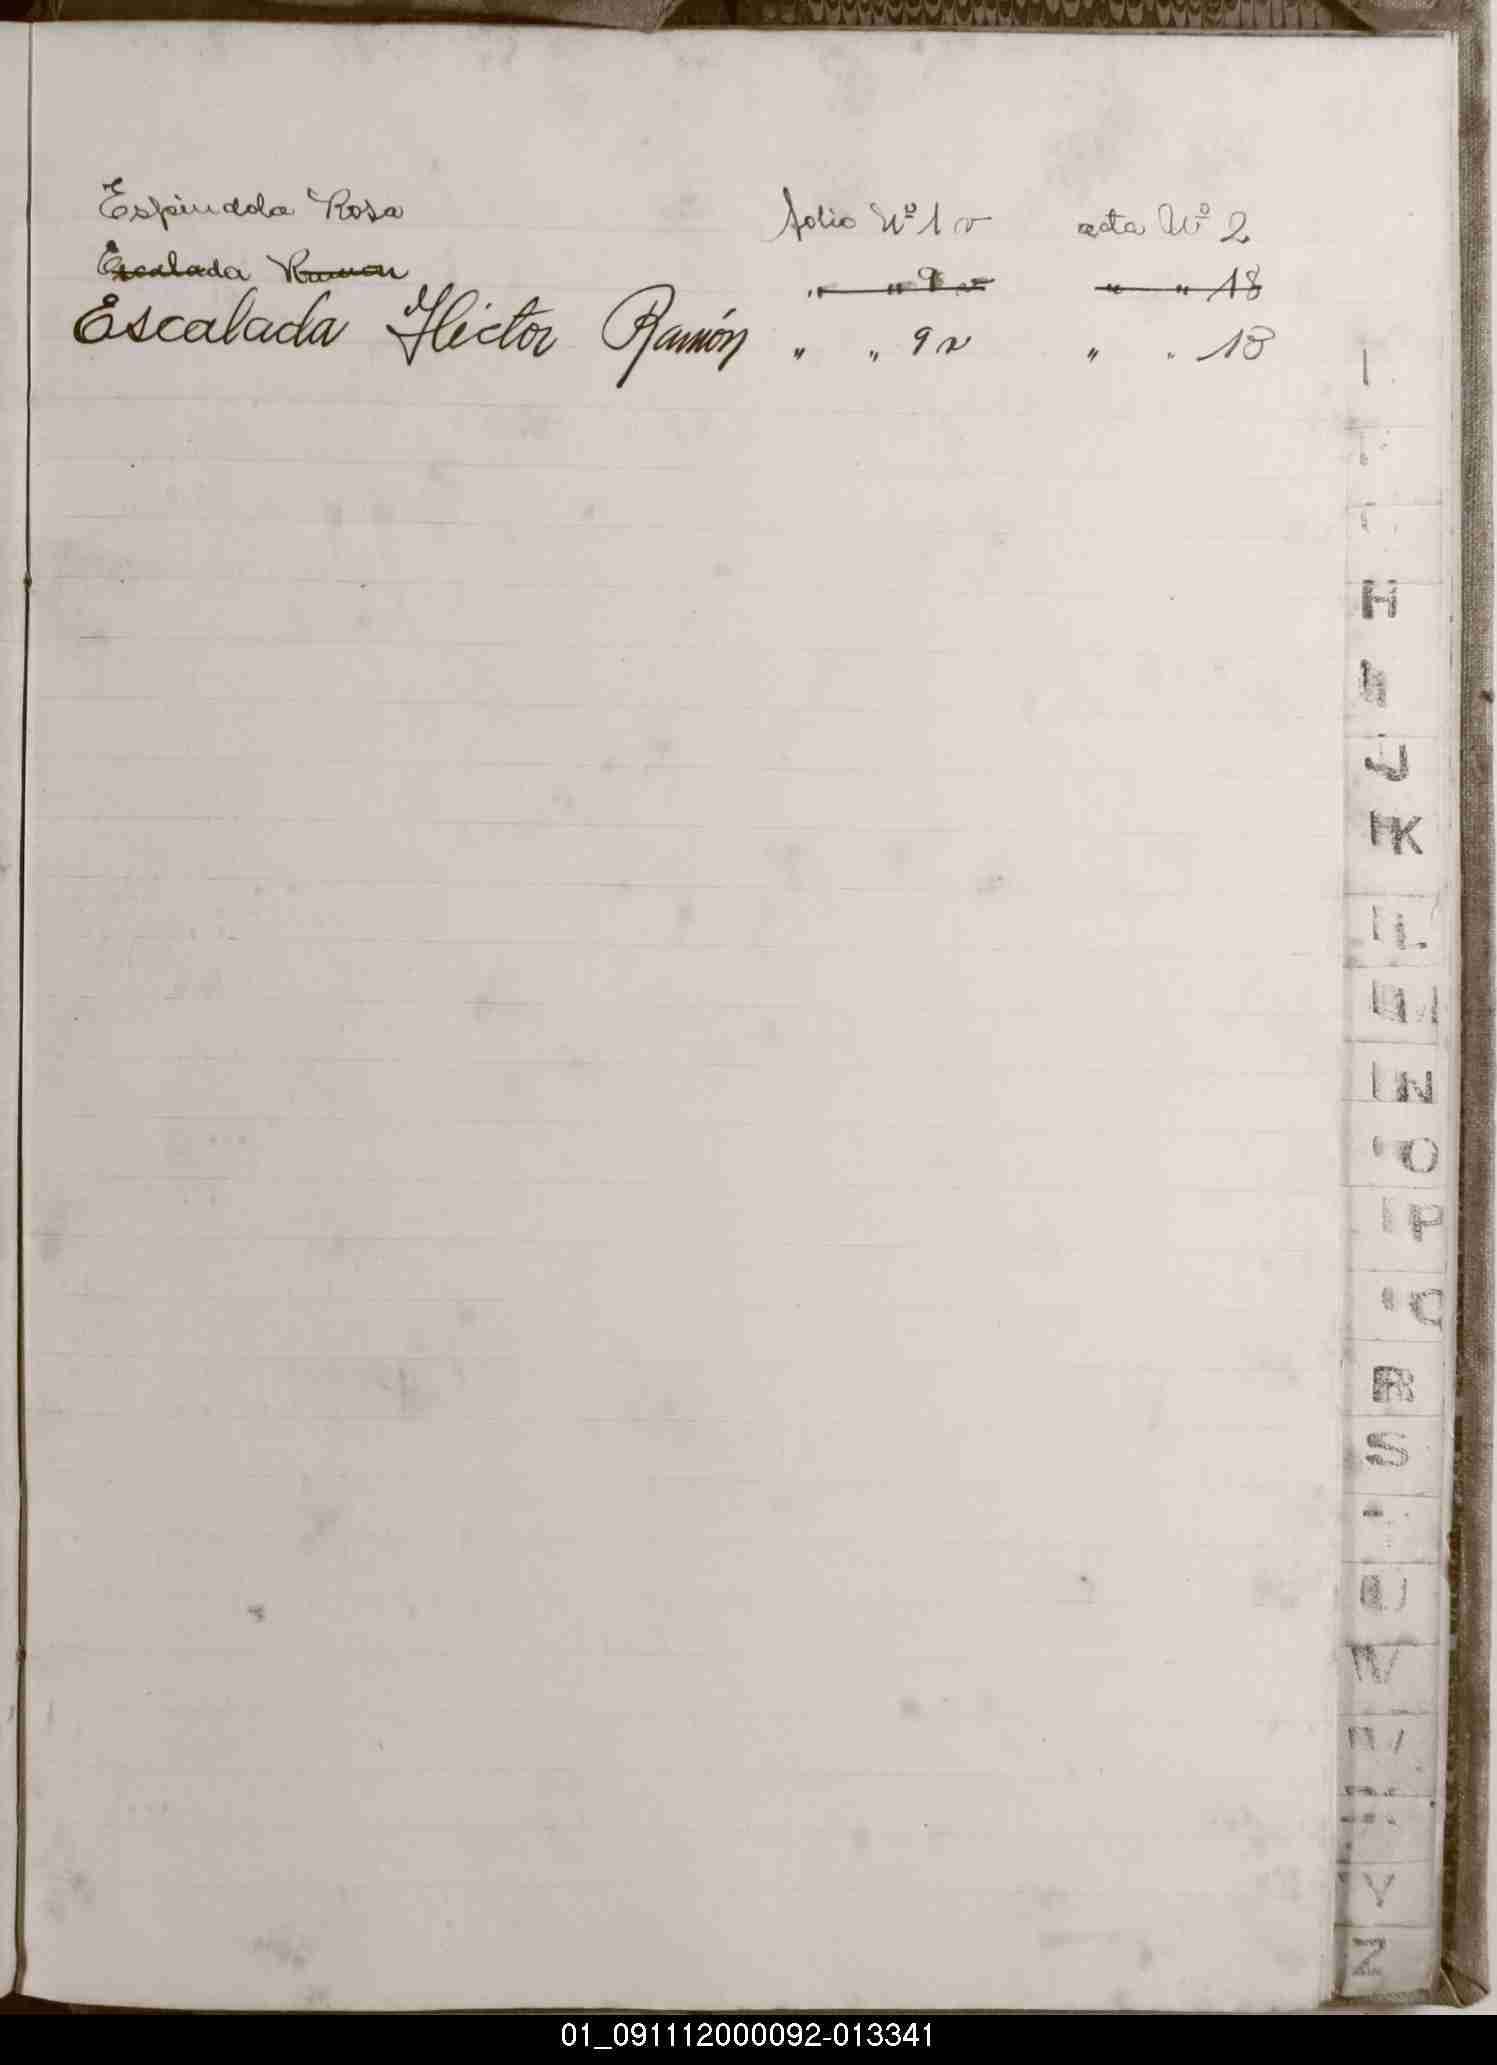 Espindola Rosa folio Nº 1 v acta Nº 2
Escalada Ramon " " 9 v " " 18
Escalada Héctor Ramón " " 9 v " " 18
H
J
K
N
O
P
R
S
U
V
Y
Z
01_091112000092-013341